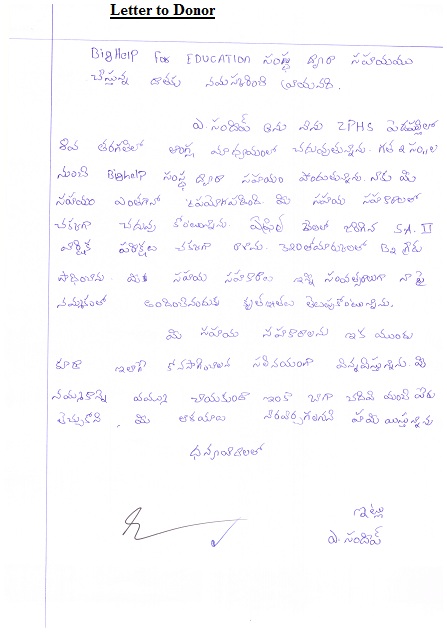 Letter to Donor
BigHelp For EDUCATION సంస్థ ద్వారా సహాయము
చేస్తున్న దాతకు నమస్కరించి వ్రాయునది.
ఎ. సందీప్ అను నేను ZPHS పెదపల్లిలో
తరగతిలో ఆంగ్ల మాధ్యమంలో చదువుతున్నాను. గత 2 సం॥ల
నుంచి BigHelp సంస్థ ద్వారా సహాయం పొందుతున్నాను. నాకు మీ
సహాయం ఎంతగానో ఉపయోగపడింది మీ సహాయ సహకారాలతో
చక్కగా చదువు కొంటున్నాను. ఏప్రిల్ నెలలో జరిగిన S.A. II
వార్షిక పరీక్షలు చక్కగా రాశాను. B2 గ్రేడు
సాధించాను. మీరు సహాయ సహకారాలు ఇన్ని సంవత్సరాలుగా నా పై
నమ్మకంతో అందించినందుకు కృతజ్ఞతలు తెలుపుకొంటున్నాను.
మీ సహాయ సహకారాలను ఇక ముందు
కూడా ఇలాగే కొనసాగించాలని సవినయంగా విన్నవిస్తున్నాను మీ
నమ్మకాన్ని వమ్ము చేయకుండా ఇంకా బాగా చదివి మంచి పేరు
తెచ్చుకొని, మీ ఆశయాలు నెరవేర్చగలనని హామీ యిస్తున్నాను
ధన్యవాదాలతో
ఇట్లు
ఎ. సందీప్